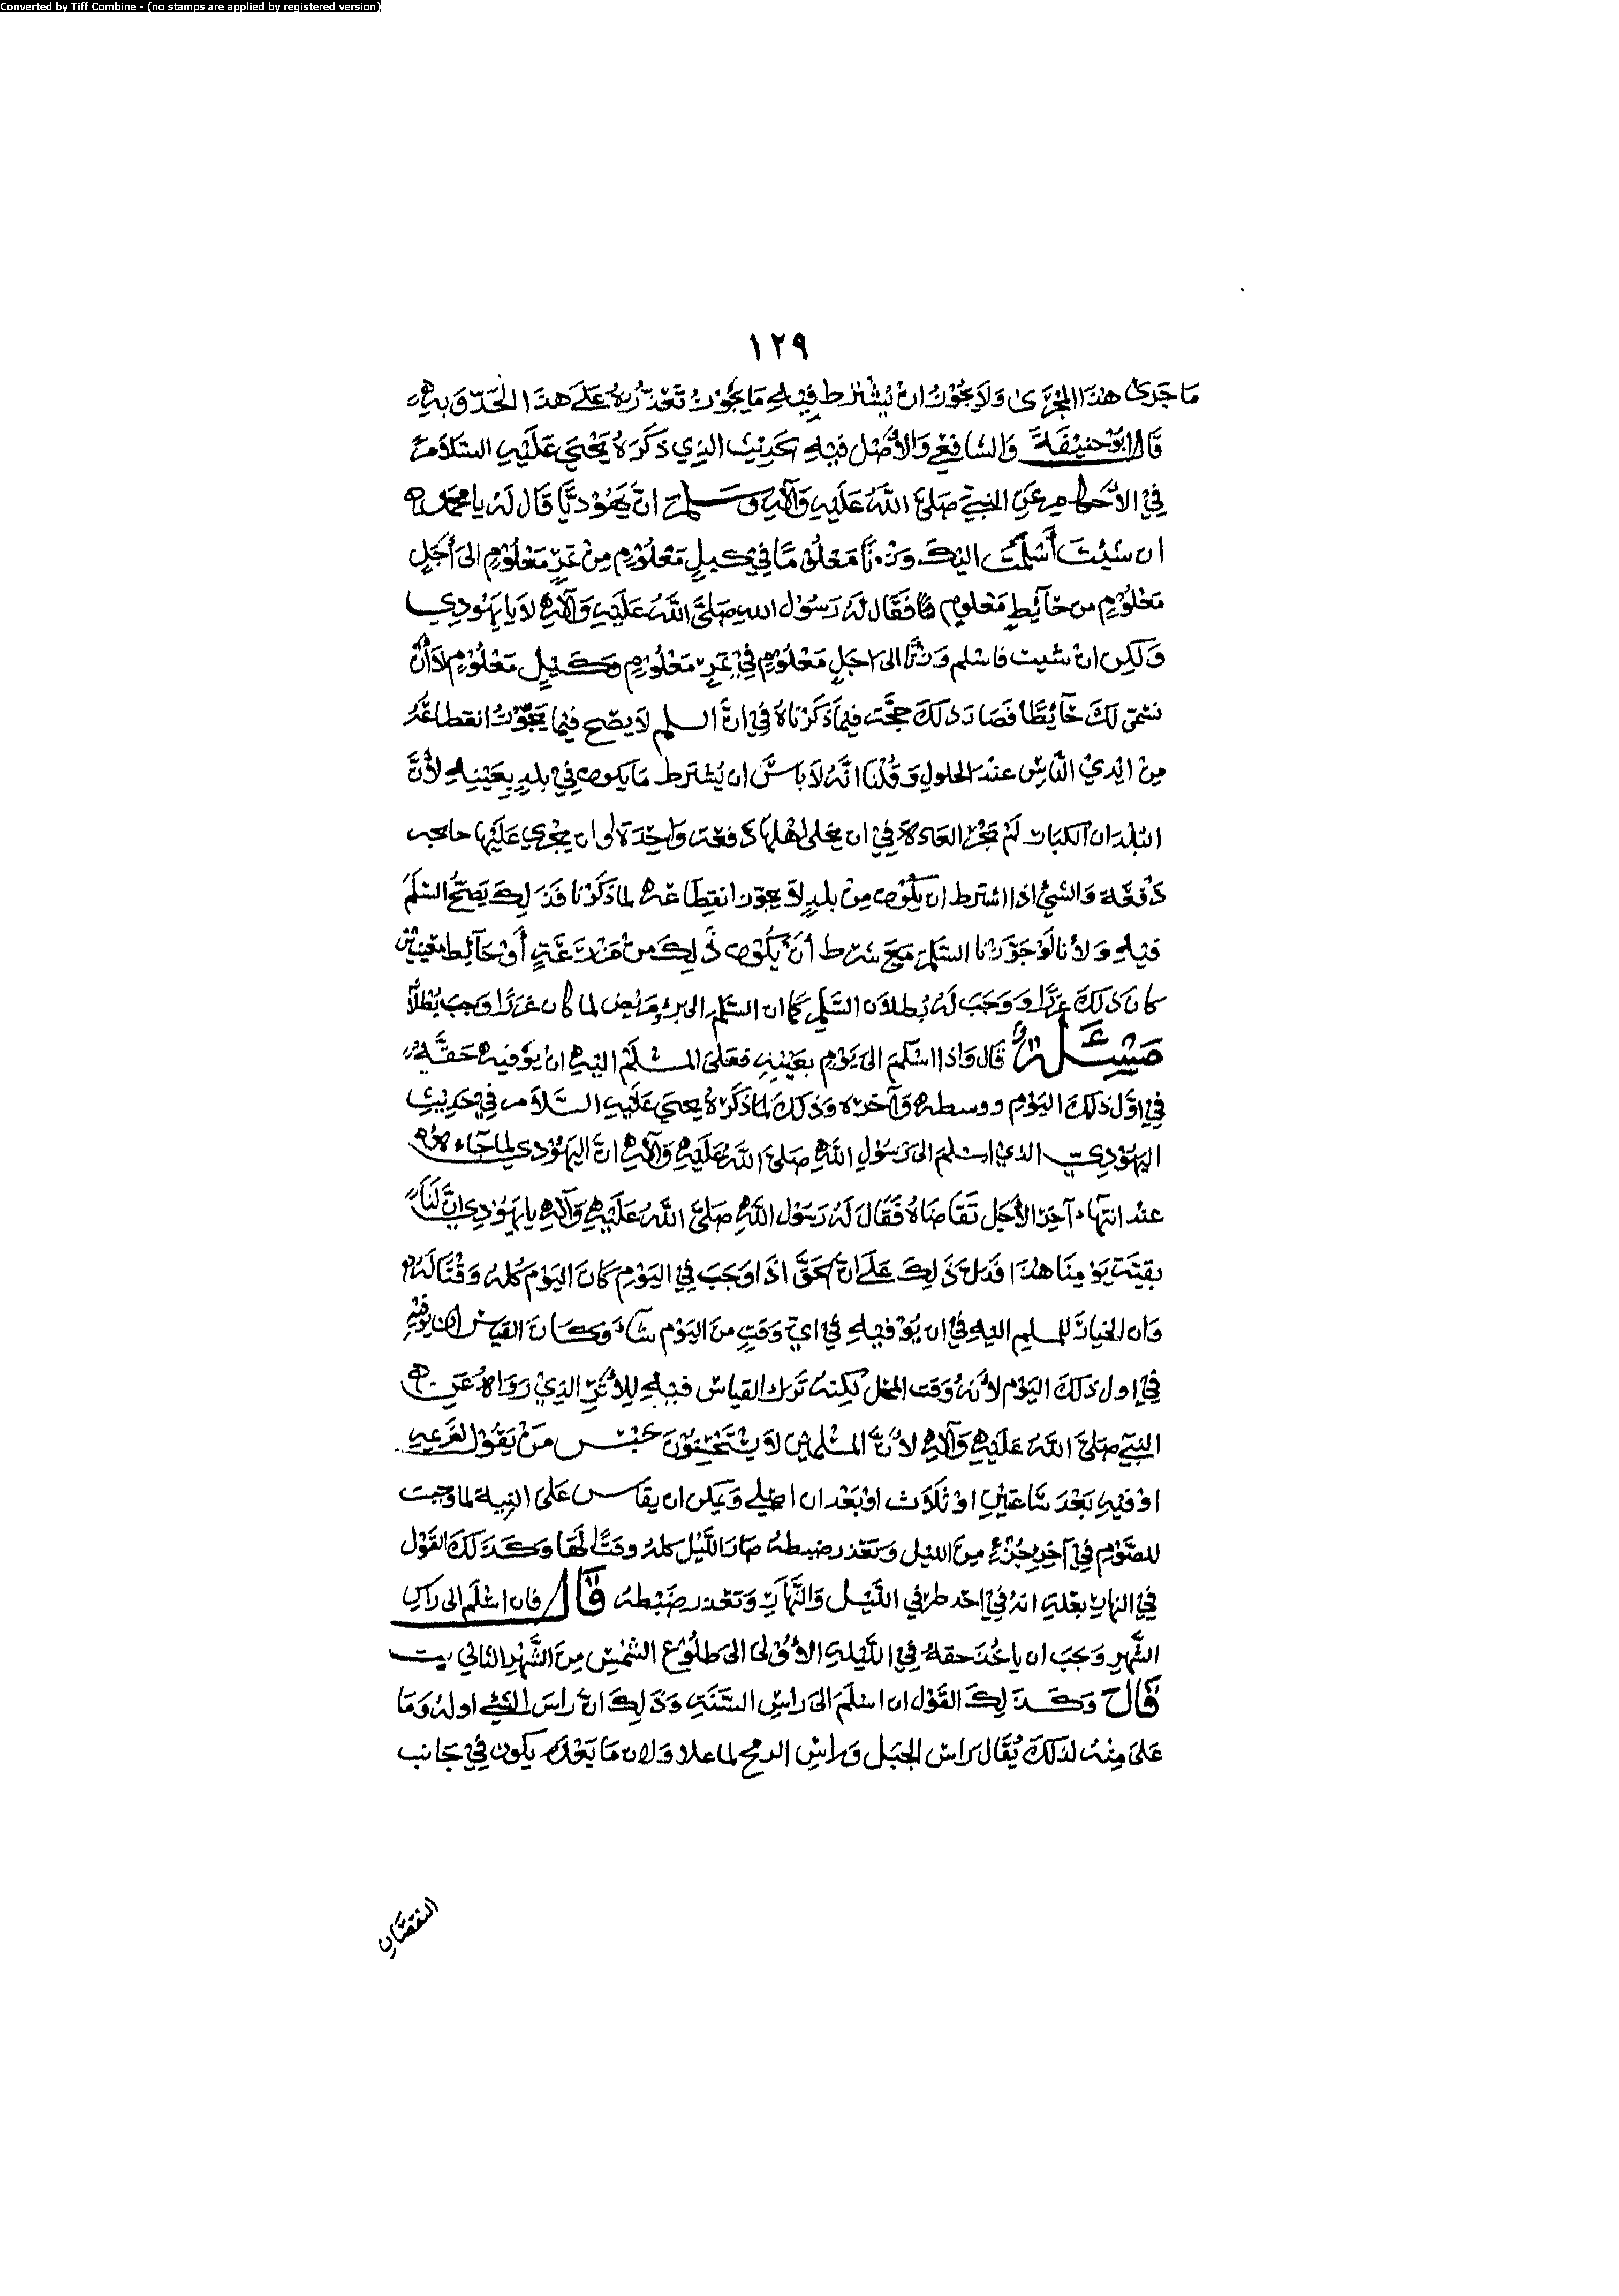 Converted by Tiff Combine - (no stamps are applied by registered version)
١٢٩
مَا جَرى هٰذَا المجْرَى وَلَا يجُوْز ان يُشْتَرط فِيْهِ مَا يجُوْز تَعَذّرُهُ عَلَى هذَا الحَدّ وَبِهِ
قَالَ ابوْ حَنيْفَة وَالشافِعِي وَالأصْل فيْهِ الحَدِيْث الذِي ذكَرَهُ يَحْيَى عَلَيْهِ السَّلَامُ
فِي الأحْكام عَنِ النبِيّ صَلى اللَّهُ عَلَيْهِ وَآلِهِ وَسَلم انّ يَهُوْديًّا قَال لَهُ يا محمد
ان شئتَ أسْلمْتُ اليكَ وزْنًا مَعْلُوْمًا في كيلٍ مَعْلُوْمٍ مِنْ تمرٍ مَعْلُوْمٍ الى أجَلٍ
مَعْلُوْمٍ من حَآئِطٍ مَعْلومٍ فَقَال لهُ رَسُوْل اللهِ صَلَّى اللَّهُ عَلَيْهِ وَآلِهِ لَا يَا يَهُودِي
وَلكِن انْ شيت فاسْلم وَزنًا الى اجَلٍ مَعْلُوْمٍ فِيْ تمرٍ مَعْلُوْمٍ وكَيْلٍ مَعْلُوْمٍ لَا أنْ
نسَمّي لكَ حَآئِطًا فَصَار ذلكَ حجَّة فيْمَا ذَكَرْنَاهُ فِيْ انَّ السلم لَا يصّح فيْمَا يجُوْزُ انقطاعُهُ
مِنْ ايْدِيْ النَّاسِ عنْدَ الحلولِ وَقُلْنَا انّهُ لَا بَاسَ ان يُشْترط مَا يكون فِيْ بلدٍ بِعَيْنِهِ لأنَّ
البُلدَان الكبَار لَمْ تجْر العَادة فِيْ ان يجلى اهْلهَا دَفعَة وَاحِدَة او ان يجْرِي عَليْهَا جائحه
دَفْعَة وَالشيْ اذَا اشترط ان يكُوْن مِنْ بلدٍ لَا يجوّز انقِطَاعه لما ذَكرْنَا فكَذلِكَ يَصحّ السَّلَمُ
فيْهِ وَلأنا لَوْ جَوَّزْنا السَّلمَ مَعَ شَرط أنْ يكُوْن ذٰلِكَ منْ مَزْرَعَةٍ أوْ حَآئِط مُعَيَّنَيْن
كان ذَلكَ غَررًا وَوَجَبَ لَهُ بُطلَان السَّلمِ كما ان السَّلم الى لما كان غررًا وَجبَ بُطْلَانُ
مَسْئَلَة قَال وَاذا اسْلمَ الى يَوْم بعَيْنِهِ فَعَلَى المسْلَم اليْهِ انْ يُوْفيه حَقَّهُ
فِيْ اوَّل ذلكَ اليَوْمِ ووسطه وَآخرِه وَذلكَ لما ذَكَرَهُ يحيى عَليهِ السَّلَام فيْ حَدِيْثِ
اليَهُوْدِيّ الذي اسلم الى رَسُوْلِ اللَّهِ صَلى اللَّهُ عَلَيْهِ وَآلِهِ انّ اليَهُوْدي لما جَآءَهُ
عند انتهاء آخِر الأجَل تَقَاضَاهُ فَقَال لَهُ رَسُوْل اللَّهِ صَلَّى اللَّهُ عَلَيْهِ وَآلِهِ يا يَهُوْدِي انَّ لنَا
بَقيَّة يَوْمِنَا هٰذَا فَدَلّ ذَلِكَ عَلَى انَّ الحَقَّ اذَا وَجَبَ فِي اليَوْمِ كَانَ اليَوْمُ كلهُ وَقْتًا لَهُ
وَان الخيَار للمسلم اليْهِ فيْ ان يُوْفيْهِ فيْ ايّ وَقتٍ منَ اليَوْم شآءَ وَكَانَ القيَاس ان يُوفيْهِ
فيْ اول ذَلكَ اليَوْم لأنَّهُ وَقت المحل لكِنهُ تَركَ القياس فيْهِ لِلأثَرِ الذِيْ رَوَاهُ عَن
النبِي صَلى اللَّهُ عَلَيْهِ وَآلِهِ لأنَّ المسْلمين لَا يَسْتَحْسِنُوْنَ حَبْس مَنْ يَقُوْل لغَرِيمِهِ
اوْفيْهِ بَعْدَ سَاعَتَيْنِ اوْ ثَلَاث اوْ بَعْد ان اصَلي وَيمكن ان يقاس عَلى النيّة لما وجبت
للصّوْم فيْ آخِر جُزْءٍ مِنَ الليل وَتعذر ضبطهُ صَارَ اللَّيْل كلهُ وَقتًا لهَا وَكذلكَ القَوْل
فيْ النهَارِ بعْلة انهُ فيْ احد طرفي اللَّيْل وَالنَّهَارِ وَتعذر ضَبْطهُ قَالَ فان اسْلَم الى رَاسِ
الشَّهْرِ وَجَبَ ان ياخُذ حَقهُ في اللَّيْلةِ الأوْلى الى طلُوْع الشمْسِ مِنَ الشَّهْرِ الثاني
قَالَ وَكَذلِكَ القَوْل ان اسْلَمَ الى رَاسِ السَّنَةِ وَذلِكَ انّ رَاسَ الشيْء اولهُ وَمَا
عَلى مِنْهُ لذَلكَ يُقَال رَاس الجبَل وَراس الرمح لما علا وَلان مَا بَعْدَهُ يكون فِيْ جَانب
النقصَان